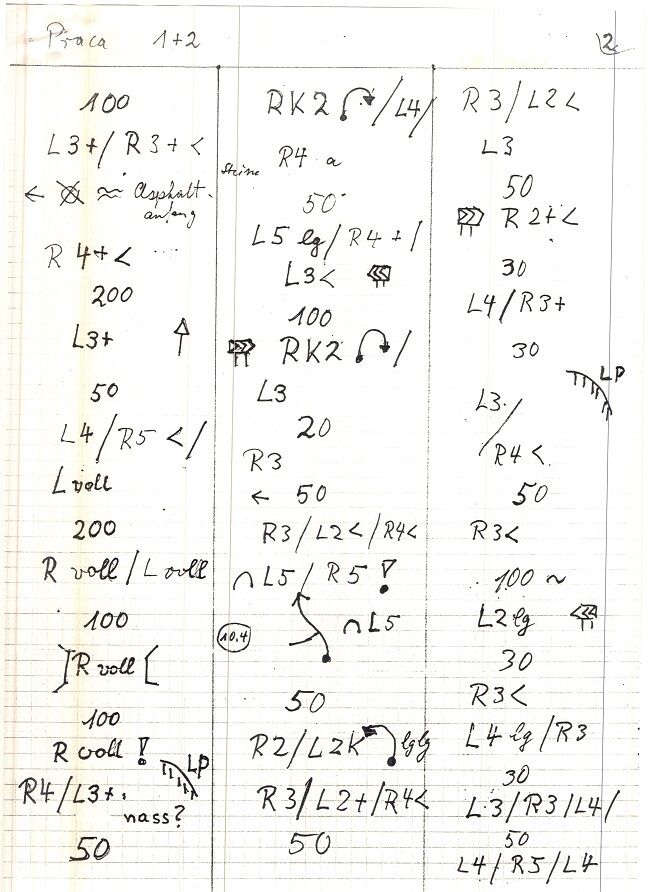 Praca 1+2
2
100
L3+/ R3+ <
← ≈ Asphalt-
anfang
R 4+<
200
L3+
50
L4/R5 </
L voll
200
R voll / L voll
100
][R voll [
100
R voll !
LP
R4/L3+.
nass?
50
RK2 /L4/
Steine R4 a
50
L5 lg/R4+/
L3<
100
RK2 /
L3
20
R3
← 50
R3/L2</R4<
∩L5/R5 !
10.4 ∩L5
50
R2/L2K lglg
R3/L2+/R4<
50
R3/L2<
L3
50
R2+<
30
L4/R3+
30
LP
L3/
/R4<
50
R3<
100 ~
L2lg
30
R3<
L4 lg/R3
30
L3/R3/L4/
50
L4/R5/L4